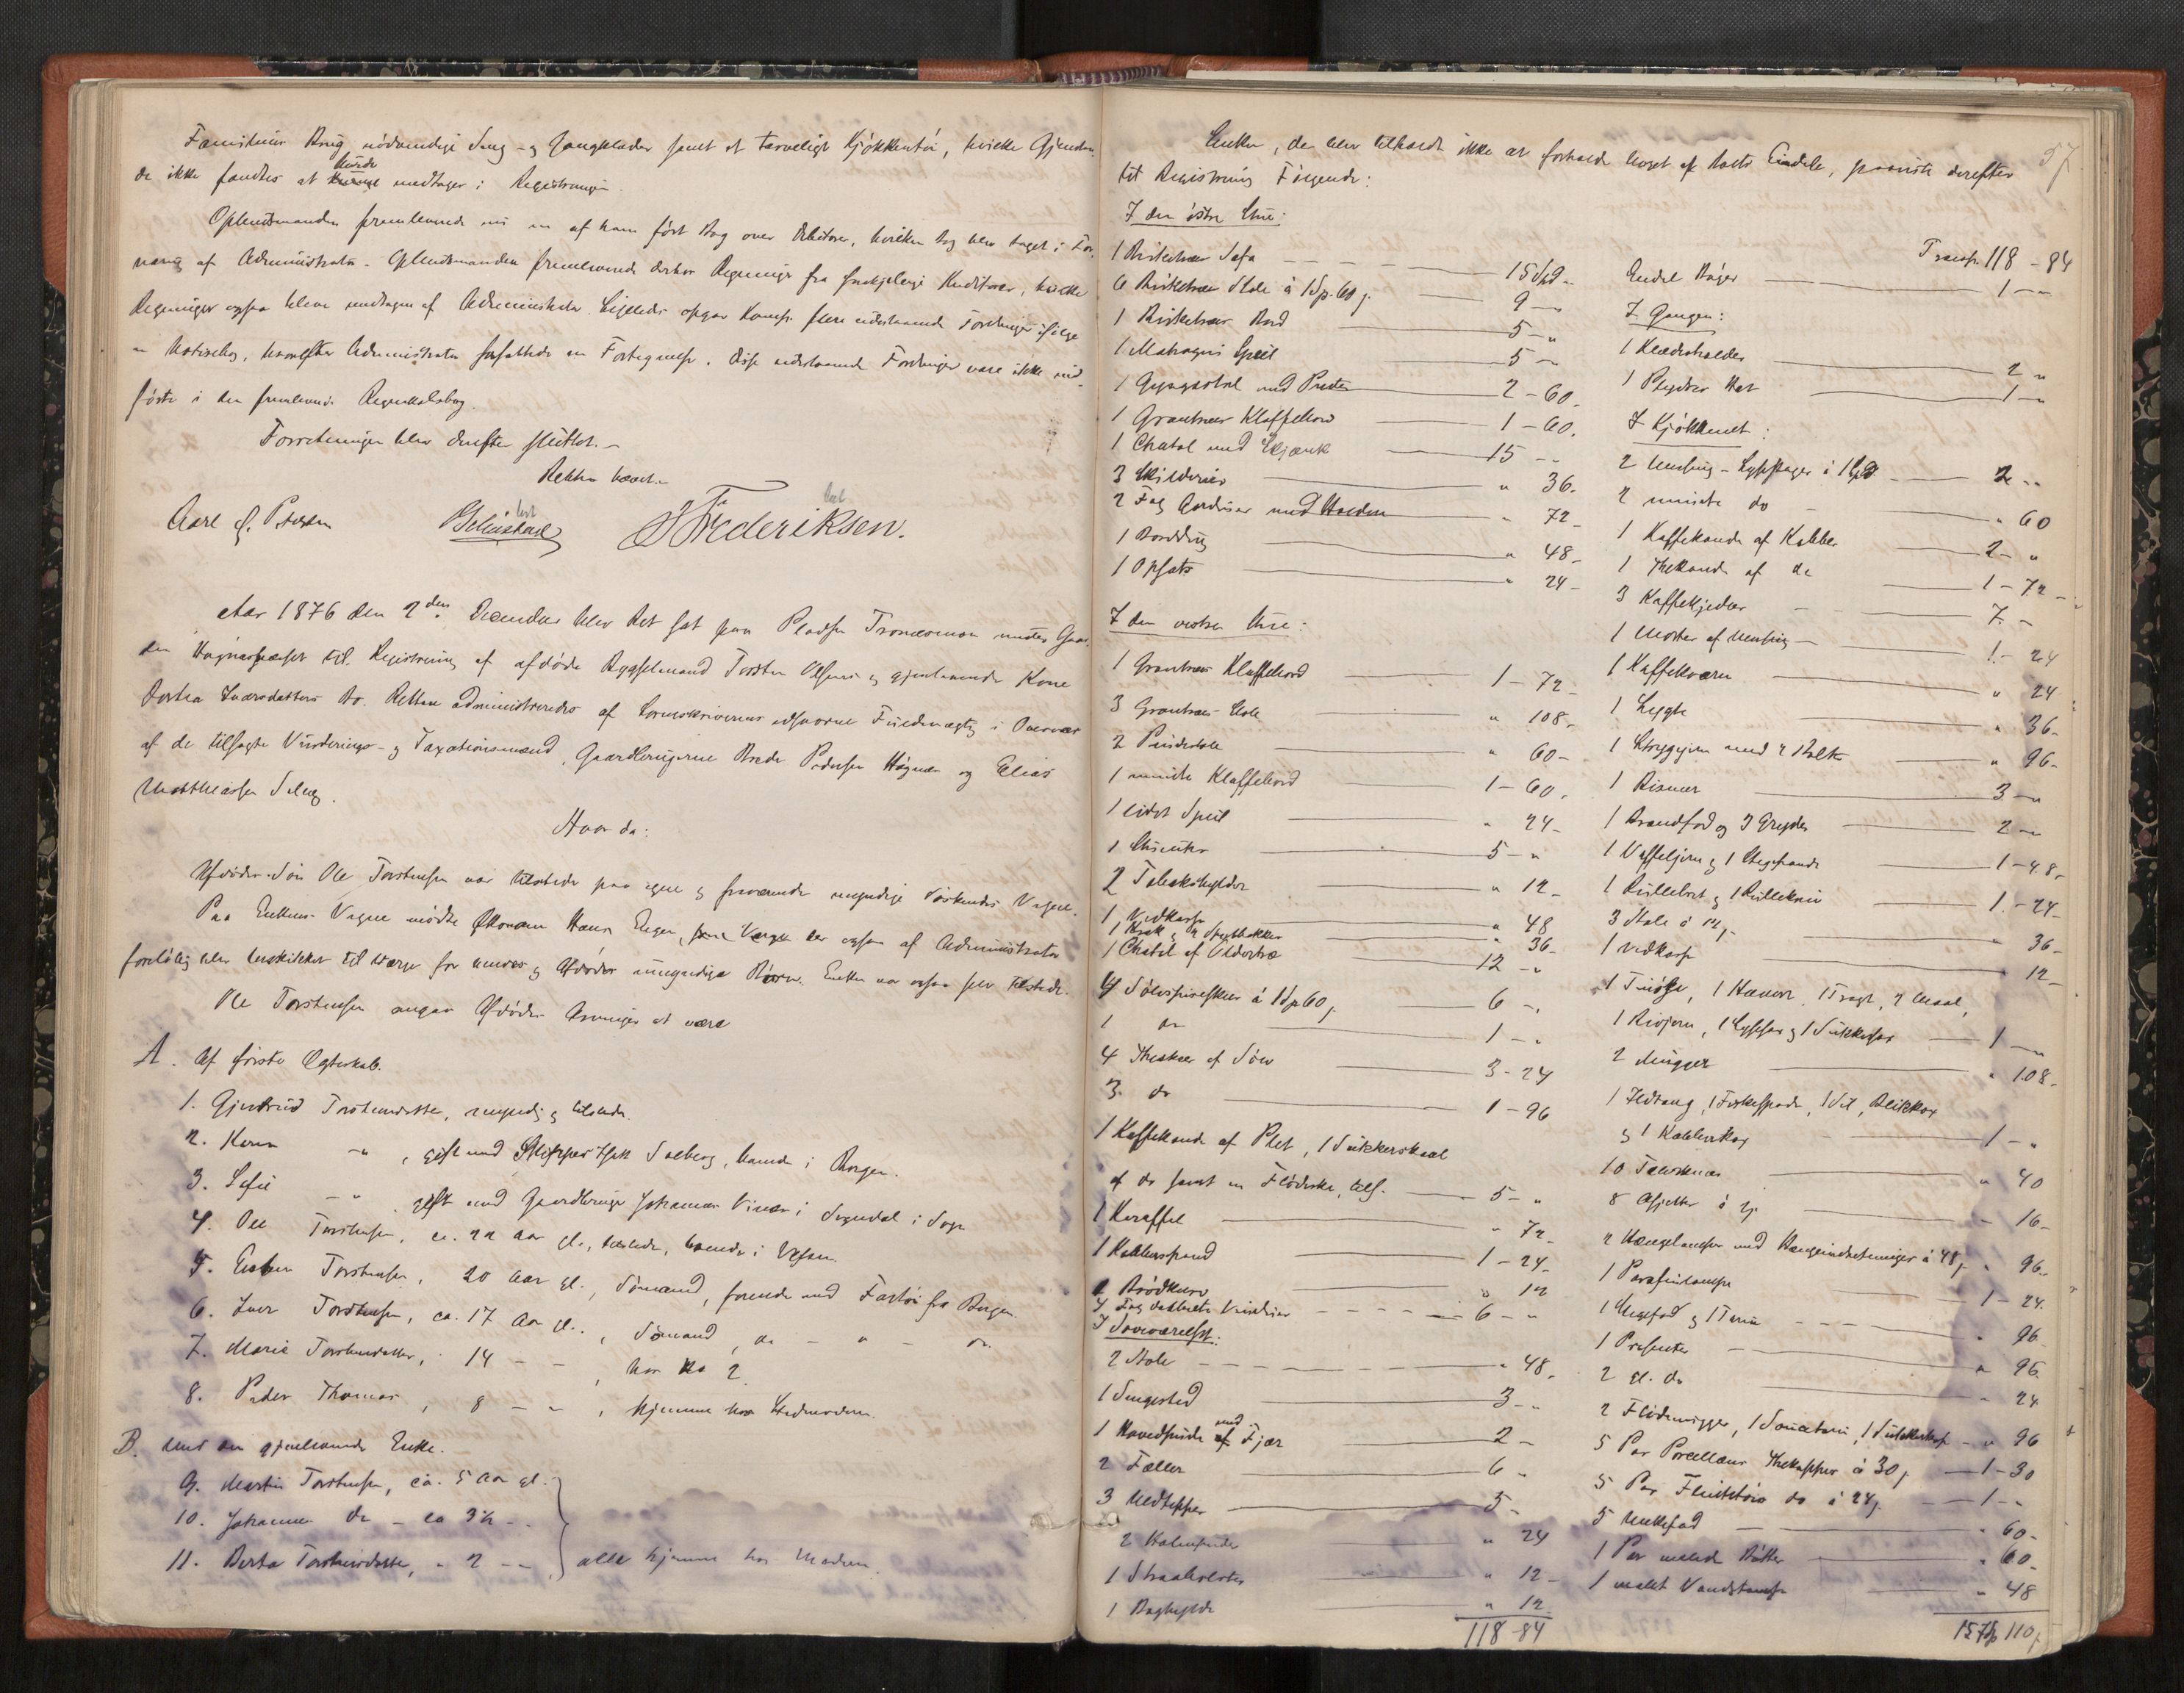 Familiens Brug nödvendige Seng- og Gangklæder samt et tarveligt Kjökkentöi, hvilke Gjenstan-
de ikke fandtes at burde medtages i Registreringen.
Opbudsmanden fremleverede nu en af ham fört Bog over Debitorer, hvilken Bog blev taget i For-
varing af Administrator. Opbudsmanden fremleverede derhos Regninger fra forskjellige Kreditorer, hvilke
Regninger ogsaa bleve modtagne af Administrator. Ligeledes opgav Komp. flere udestaaende Fordringer ifölge
en Notisebog, hvorefter Administrator forfattede en Fortegnelse. Disse udestaaende Fordringer vare ikke ind-
förte i den fremleverede Regnskabsbog.
Forretningen blev derefter sluttet.-
Retten hævet.-
Carl P. Petersen
Frederiksen.
Aar 1876 den 2den December blev Ret sat paa Pladsen under Gaar-
den til Registrering af afdöde Torsten Olsens og gjenlevende Kone
Dorthea Iversdatters Bo. Retten administreredes af Sorenskriverens edsvorne Fuldmægtig i Overvær
af de tilsagte Vurderings- og Taxationsmænd, Gaardbrugerne Peder Pedersen Hagnæs og Elias
Matthiassen
Hvor da:
Afdödes Sön Ole Torstensen var tilstede paa egne og fraværende umyndige Söskendes Vegne.
Paa Enkens Vegne mödte Hans Enger, som Verge der ogsaa af Administrator
forelöbig blev beskikket til Værge for hendes og Afdödes umyndige Börn. Enken var ogsaa selv tilstede.
Ole Torstensen angav Afdödes Arvinger at være
A. Af förste Ægteskab.
1. Gjertrud Torstensdatter, myndig og tilstede.
2. Karen -"- , gift med Skipper Solberg, boende i Bergen.
3. Sofie -"- gift med Gaardbruger Johannes i Sogndal i Sogn
4. Ole Torstensen, ca. 22 Aar gl., tilstede, boende i Vefsen.
5. Torstensen, 20 Aar gl., Sömand, farende med Fartöi fra Bergen.
6. Iver Torstensen, ca. 17 Aar gl., Sömand, do - " - do.
7. Marie Torstensdatter, 14 - - , hos No 2.
8. Peder Thomas , 8 - - , hjemme hos Stedmoderen.
B. Med den gjenlevende Enke.
9. Martin Torstensen, ca. 5 Aar gl.
10. Johannes do - ca 3½ - -
11. Berta Torstensdatter, " 2 - - alle hjemme hos Moderen.
57
Enken, der blev tilholdt ikke at forholde noget af Boets Eiendele, paaviste derefter
til Registrering Fölgende:
I den östre Stue:
1 Birketræs Sofa 15 Spd -
6 Birketræs Stole á 1 Sp. 60 ß 9 -
1 Birketræs Bord 5 - "
1 Mahogni Speil 5 -
1 Gyngestol med Puder 2 - 60.
1 Grantræs Klaffebord 1 - 60.
1 Chatol med Skjænk 15 - -
3 Skilderier " 36.
2 Fag Gardiner med Holdere " 72 -
1 Borddug " 48 -
1 Opsats " 24 -
I den vestre Stue:
1 Grantræs Klaffebord 1 - 72 -
3 Grantræs Stole " 108 -
2 Pindestole " 60 -
1 mindre Klaffebord 1 - 60.
1 lidet Speil " 24 -
1 Stueuhr 5 - "
2 Tobakshylder " 12 -
1 Vedkasse " 48
" 36 -
1 Chatol af Oldertræ 12 - "
4 Sölvspiseskeer á 1 Sp 60 ß 6 -
1 do 1 - "
4 Theskeer af Sölv 3 - 24
3 do 1 - 96
1 Kaffekande af Plet, 1 Sukkerskaal
af do samt en Flödeske, tils. 5 - "
1 Karaffel " 72 -
1 Kobberspand 1 - 24 -
1 Brödkurv " 12
4 Fag Vinduer 6 - "
I Soveværelset:
2 Stole " 48 -
1 Sengested 3 - "
1 Hovedpude med Fjær 2 -
2 Fæller 6 -
3 Uldtepper 5 -
2 Halmpuder " 24
1 Straabolster " 12 -
1 Boghylde " 12
118 - 84
Transp. 118 - 84
Endel Böger 1 - "
I Gangen:
1 Klædesholder 2 "
1 Hat 1 - "
I Kjökkenet:
2 Messing-Lysestager á 1 Spd 2 - -
2 mindre do " 60
1 Kaffekande af Kobber 2 - "
1 Thekande af do 1 - 72 -
3 Kaffekjedler 7 -
1 Morter af Messing 1 - 24
1 Kaffekværn " 24
1 Lygte " 36 -
1 Strygejern med 2 Bolte " 96 -
1 Bismer 3 - "
1 Brandfod og 3 Gryder 2 - "
1 Vaffeljern og 1 Stegepande 1 - 48 -
1 Rullebret og 1 Rullekniv 1 - 24 -
3 Stole á 12 ß 36 -
1 Vedkasse 12 -
1 Tragt, 2 Maal,
1 Rivjern, 1 Lysesax og 1 Sukkersax 1 - "
2 Mugger " 108 -
1 Ildtang, 1 Fiskespade, 1 Sil, Blikkar
og 1 Kobberkar 1 - "
10 Tallerkener " 40
8 Asjetter á 2 ß - 16 -
2 Hængelamper med Hængeindretninger á 48 ß " 96 -
1 Parafinlampe 1 - 24.
1 Stegefad og 1 Terrin " 96
1 Presenter " 96
2 gl. do " 24
2 Flödemugger, 1 Sauceterrin, 1 Sukkerkop " 96
5 Par Porcellæns Thekopper á 30 ß 1 - 30
5 Par Flinttöis do á 24 ß 1 - "
5 Melkefad " 60 -
1 Par malede Bötter " 60 -
1 malet Vandstamp " 48
157 Sp 110 ß